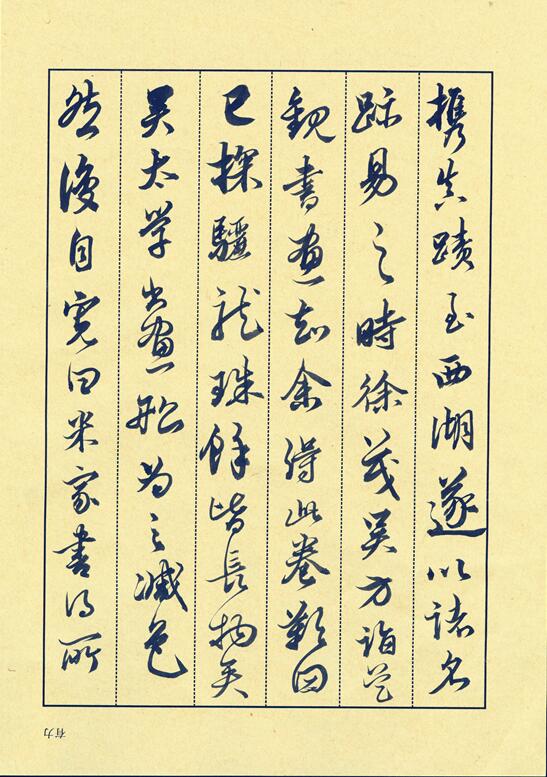 攜真蹟至西湖遂以諸名
跡易之時徐茂吳方詣吳
觀書畫知余得此卷歎曰
已探驪龍珠餘皆長物矣
吳太學書畫船為之減色
然後自寬曰米家書得所
有力